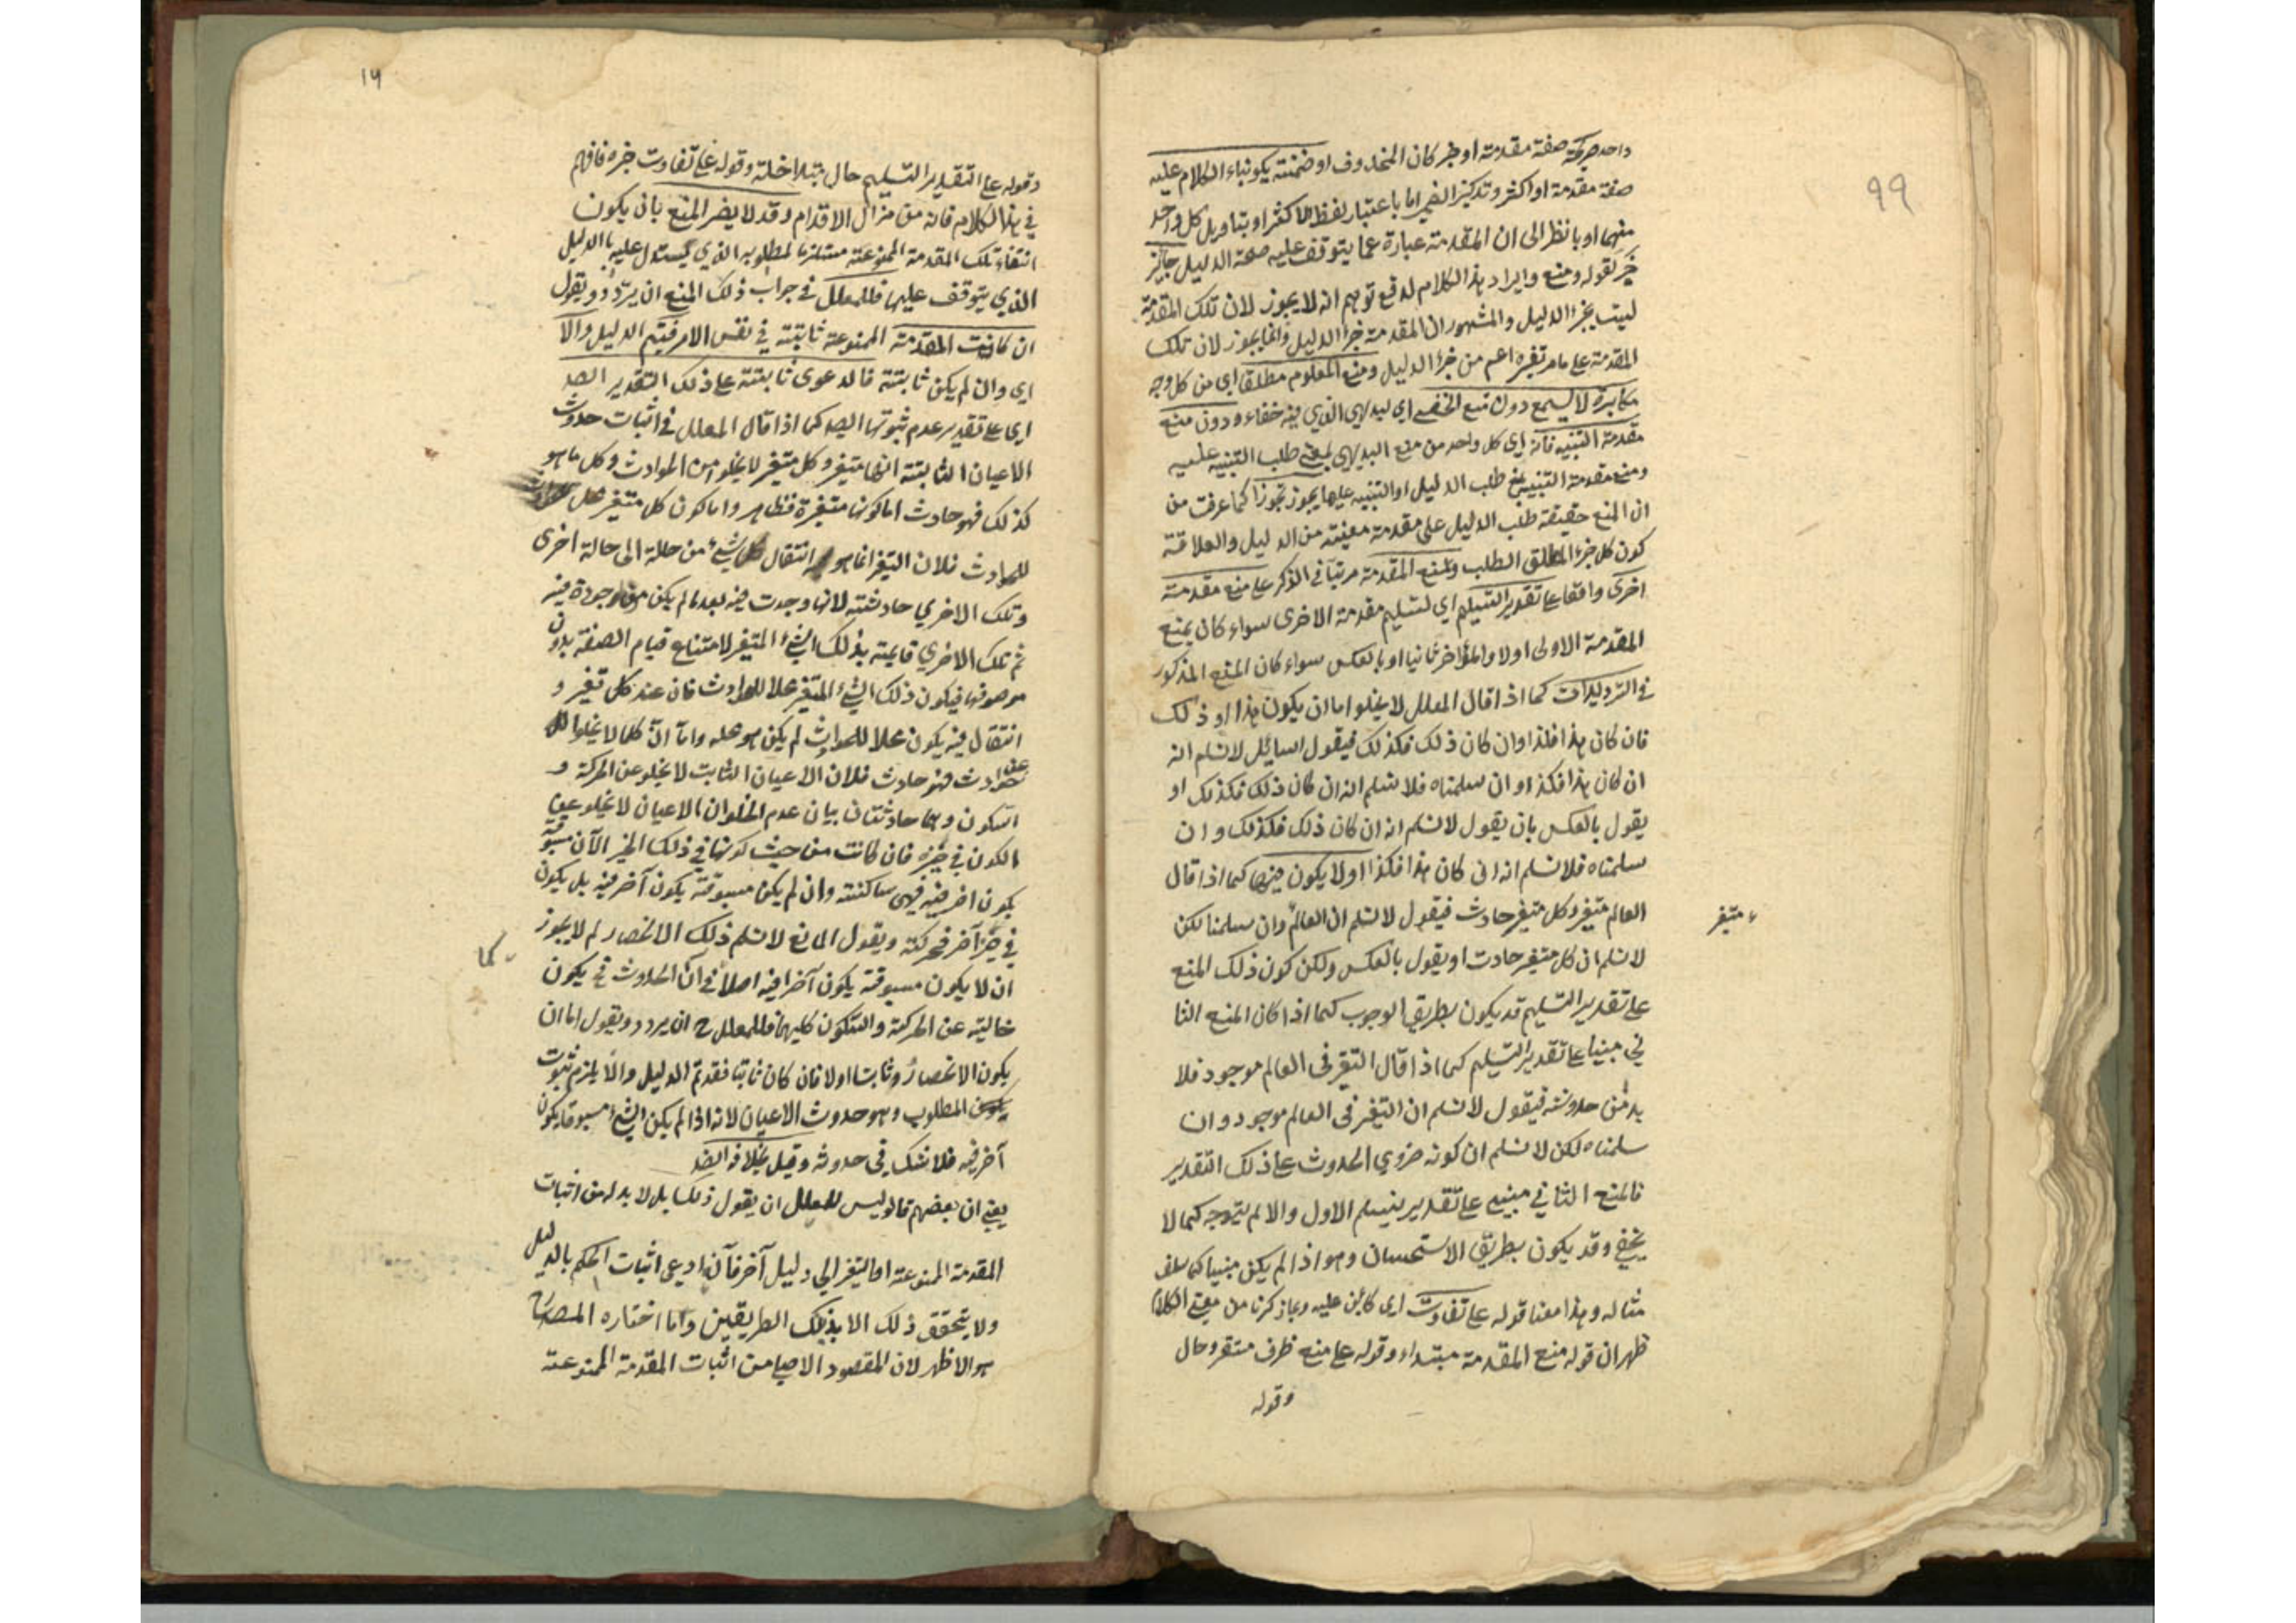 ٩٩
واحد صريحة صفة مقدمة او خبر كان المحذوف او ضمنته يكون بناء الكلام عليه
صفة مقدمة او اكثر وتذكير الضمير اما باعتبار لفظ الاكثر او بتاويل كل واحد
منهما او بالنظر الى ان المقدمة عبارة عما يتوقف عليه صحة الدليل جايز
خبر لقوله ومنع وايراد هذا الكلام لدفع توهم انه لا يجوز لان تلك المقدمة
ليست بجزء الدليل والمشهور ان المقدمة جزء الدليل وانما يجوز لان تلك
المقدمة على ما مر تفسيره اعم من جزء الدليل ومنع المعلوم مطلقا اي من كل وجه
مكابرة لا يسمع دون منع الخفي اي البديهي الذي فيه خفاء ودون منع
مقدمة التنبيه فانه اي كل واحد من منع البديهي بمعنى طلب التنبيه عليه
ومنع مقدمة التنبيه بمعنى طلب الدليل او التنبيه عليها يجوز تجوزا كما عرفت من
ان المنع حقيقة طلب الدليل على مقدمة معينة من الدليل والعلاقة
كون كل جزء المطلق الطلب ومنع المقدمة مرتبا في الذكر على منع مقدمة
اخرى واقعا على تقدير التسليم اي تسليم مقدمة الاخرى سواء كان يمنع
المقدمة الاولى اولا والمؤخر ثانيا او بالعكس سواء كان المنع المذكور
في الترديدات كما اذا قال المعلل لا يخلوا اما ان يكون هذا او ذلك
فان كان هذا فكذا وان كان ذلك فكذلك فيقول السائل لا نسلم انه
ان كان هذا فكذا وان سلمناه فلا نسلم انه ان كان ذلك فكذلك او
يقول بالعكس بان يقول لا نسلم انه ان كان ذلك فكذلك وان
سلمناه فلا نسلم انه ان كان هذا فكذا او لا يكون فيها كما اذا قال
العالم متغير وكل متغير حادث فيقول لا نسلم ان العالم وان سلمنا لكن
متغير
لا نسلم ان كل متغير حادث او يقول بالعكس ولكن كون ذلك المنع
على تقدير التسليم قد يكون بطريق الوجوب كما اذا كان المنع الثا
ني مبنيا على تقدير التسليم كما اذا قال التغير في العالم موجود فلا
بد من حدوثه فيقول لا نسلم ان التغير في العالم موجود وان
سلمناه لكن لا نسلم ان كونه ضروري الحدوث على ذلك التقدير
فالمنع الثاني مبني على تقدير تسليم الاول والا لم يتوجه كما لا
يخفى وقد يكون بطريق الاستحسان وهو اذا لم يكن مبنيا كما سلف
مثاله وهذا معنا قوله على تفاوت اي كائن عليه وبما ذكرنا من معنى الكلام
ظهر ان قوله منع المقدمة مبتداء وقوله على منع ظرف مستقر حال
وقوله
١٦
وقوله على التقدير التسليم حال متداخلة وقوله على تفاوت خبره فافهم
في هذا الكلام فانه من مزال الاقدام وقد لا يضر المنع بان يكون
انتفاء تلك المقدمة الممنوعة مستلزما لمطلوبه الذي يستدل عليه بالدليل
الذي يتوقف عليها فللمعلل في جواب ذلك المنع ان يردد ويقول
ان كانت المقدمة الممنوعة ثابتة في نفس الامر فيتم الدليل والا
اي وان لم يكن ثابتة فالدعوى ثابتة على ذلك التقدير ايضا
اي على تقدير عدم ثبوتها ايضا كما اذا قال المعلل في اثبات حدوث
الاعيان الثابتة انها متغير وكل متغير لا يخلوا من الحوادث وكل ما هو
كذلك فهو حادث اما كونها متغيرة فظاهر واما كون كل متغير محل
للحوادث فلان التغير انما هو انتقال الشئ من حالة الى حالة اخرى
وتلك الاخرى حادثة لانها وجدت فيه بعد ما لم يكن موجودة فيه
ثم تلك الاخرى قايمة بذلك الشئ المتغير لامتناع قيام الصفة بدون
موصوفها فيكون ذلك الشئ المتغير محلا للحوادث فان عند كل تغير و
انتقال فيه يكون محلا للحوادث لم يكن هو محله واما ان كلما لا يخلوا
عن حوادث فهو حادث فلان الاعيان الثابت لا يخلو عن الحركة و
السكون وهما حادثتان بيان عدم الخلو ان الاعيان لا يخلو عن
الكون في حيز فان كانت من حيث كونها في ذلك الحيز الآن مسبوقة
بكون اخر فيه فهي ساكنة وان لم يكن مسبوقة بكون آخر فيه بل يكون
في حيز آخر فحركة ويقول المانع لا نسلم ذلك الانحصار لم لا يجوز
كما
ان لا يكون مسبوقة بكون آخر فيه اصلا في آن الحدوث في يكون
خالية عن الحركة والسكون كليهما فللمعلل ح ان يردد ويقول اما ان
يكون الانحصار ثابتا اولا فان كان ثابتا فقد تم الدليل والا يلزم ثبوت
المطلوب وهو حدوث الاعيان لانه اذا لم يكن الشئ مسبوقا بكون
آخر فيه فلا شك في حدوثه وقيل بخلافه ايضا
يعني ان بعضهم قالو ليس للمعلل ان يقول ذلك بل لا بد له من اثبات
المقدمة الممنوعة او التغير الى دليل آخر فانه ادعى اثبات الحكم بالدليل
ولا يتحقق ذلك الا بذينك الطريقين واما اختاره المصنف
هو الاظهر لان المقصود الاصلي من اثبات المقدمة الممنوعة